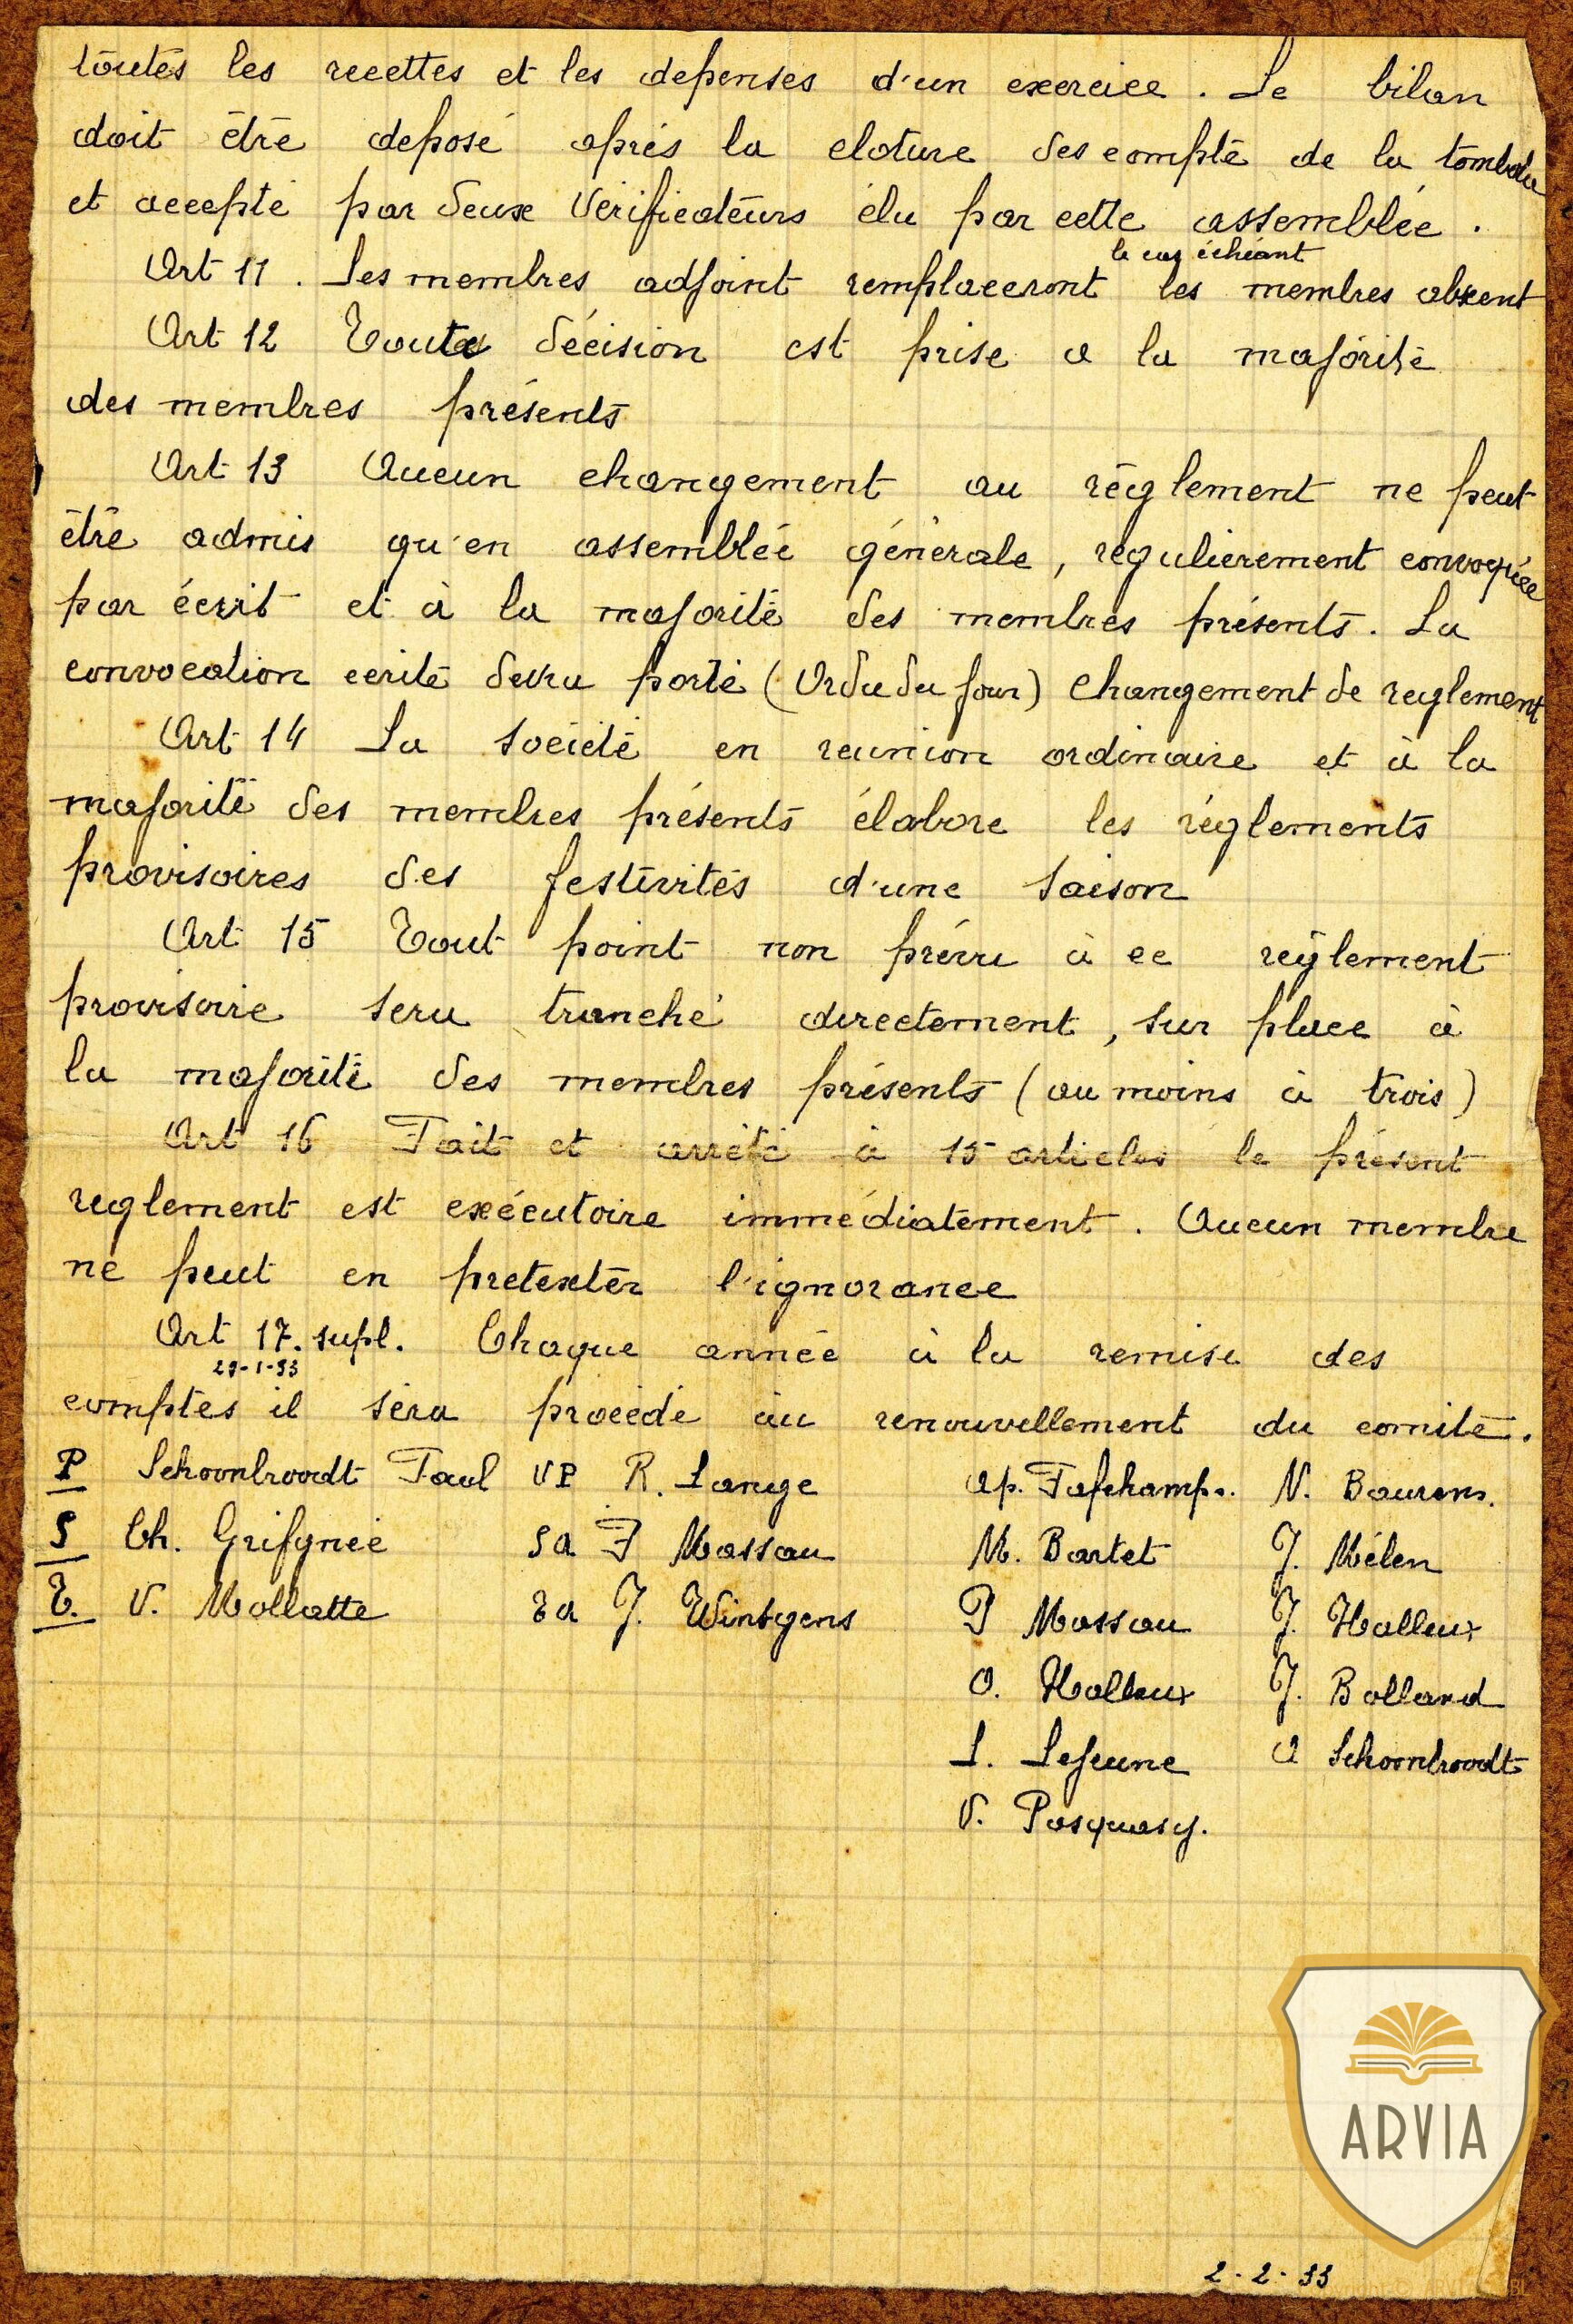 toutes les recettes et les depenses d'un exercice. Le bilan
doit être deposé aprés la cloture des compte de la tombola
et accepté par deux Vérificateurs élu par cette assemblée.
le cas échéant
Art 11. Les membres adjoint remplaceront les membres absent
Art 12 Toute décision est prise a la majorité
des membres présents
Art 13 Aucun changement au réglement ne peut
être admis qu'en assemblée génerale, régulierement convoquée
par écrit et à la majorité des membres présents. La
convocation ecrite devra porté (Ordu du jour) Changement de reglement
Art 14 La société en reunion ordinaire et à la
majorité des membres présents élabore les réglements
provisoires des festivités d'une saison
Art 15 Tout point non prévu à ce réglement
provisoire sera tranché directement, sur place à
la majorité des membres présents (au moins à trois)
Art 16 Fait et arrêté à 15 articles le présent
reglement est exécutoire immédiatement. Aucun membre
ne peut en pretexter l'ignorance
Art 17. supl. Chaque année à la remise des
29-1-33
comptes il sera procédé au renouvellement du comité.
P Schoonbroodt Paul VP R. Lange ap. Fafchamps. N. Baurens.
S Ch. Grifgnée Sa F Massau M. Bartet J. Mélen
T. V. Mollatte Ta J. Wintgens P Massau J. Halleux
O. Halleux J. Bolland
L. Lejeune A Schoonbroodt
V. Pasquasy.
ARVIA
2-2-33